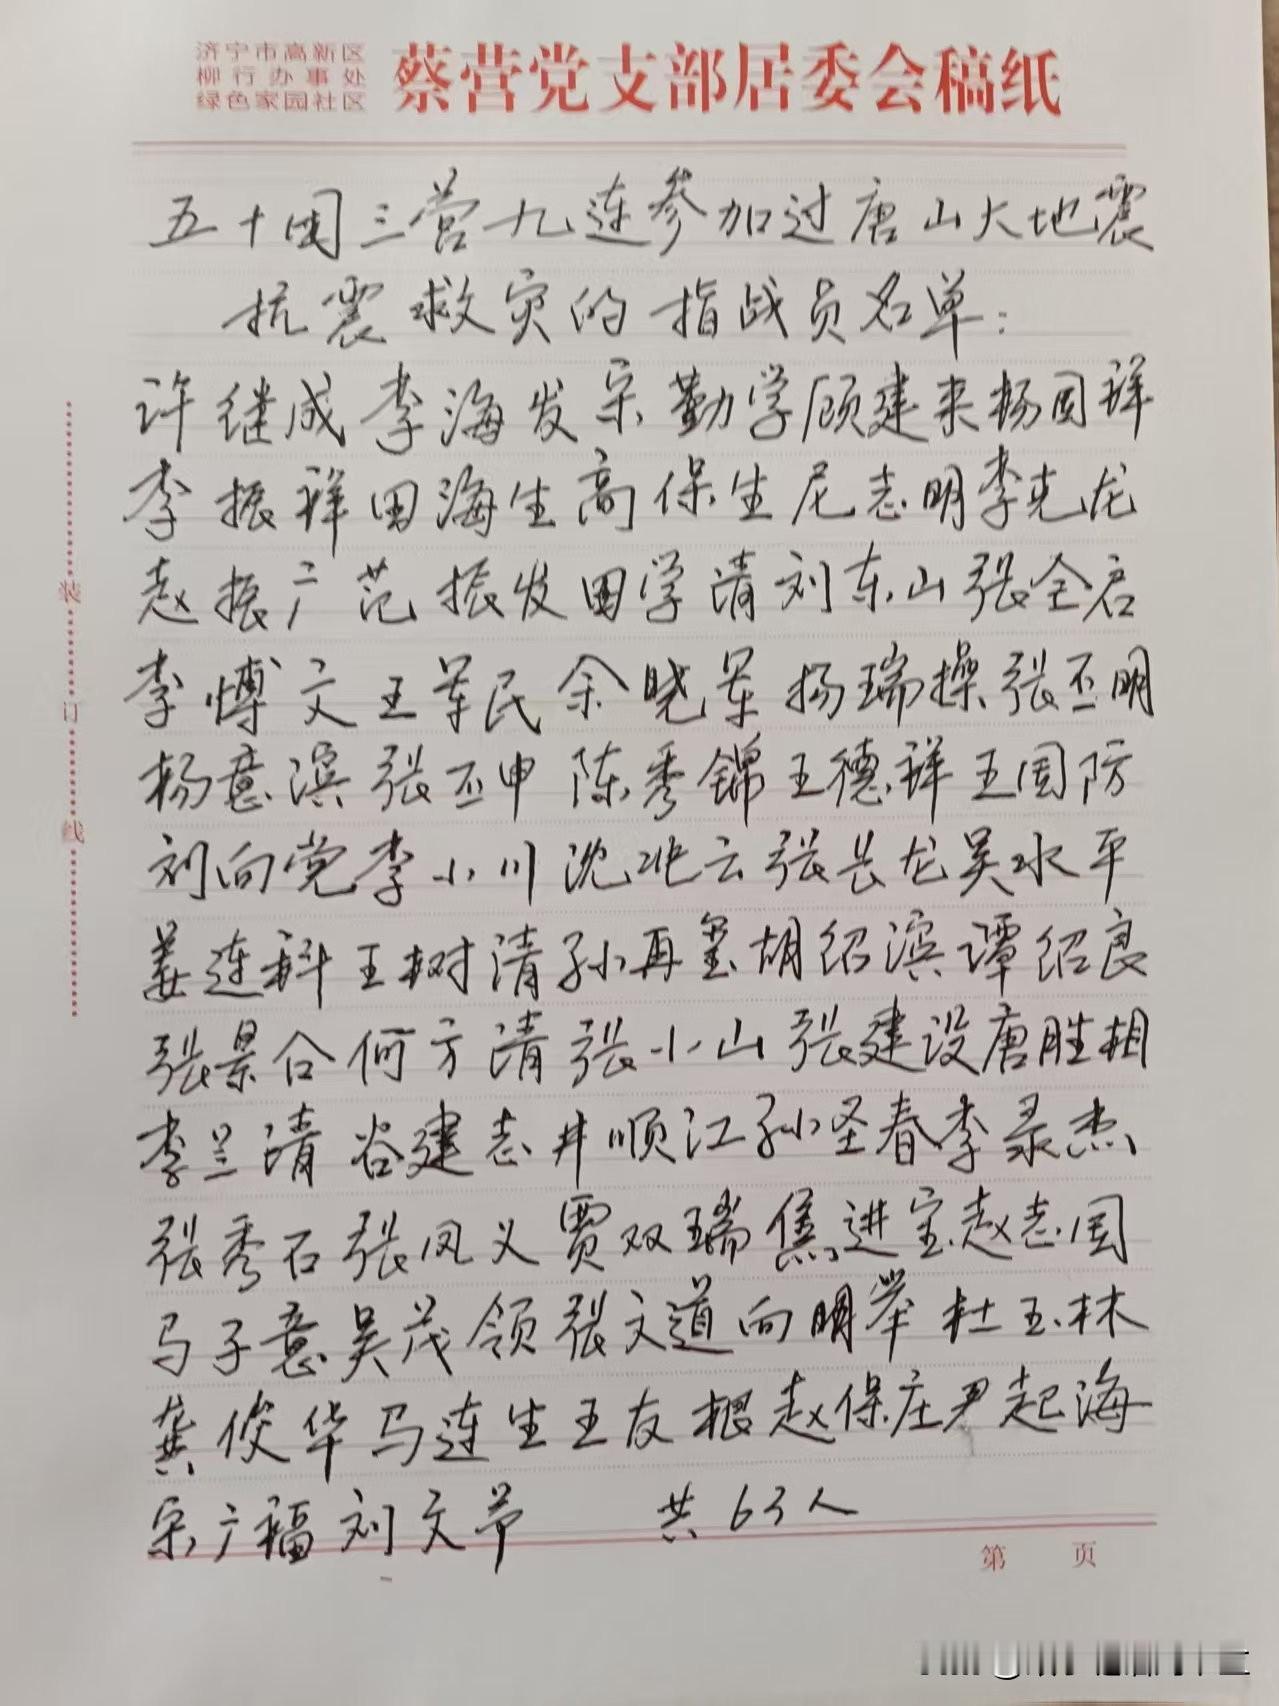 济宁市高新区
柳行办事处
绿色家园社区
蔡营党支部居委会稿纸
五十团三营九连参加过唐山大地震
抗震救灾的指战员名单：
许继成李海发宋勤学顾建来杨国祥
李振祥田海生高保生尼志明李克龙
赵振广范振发田学清刘东山张全启
李博文王军民余晓军杨瑞操张丕明
杨意滨张丕申陈秀锦王德祥王国防
刘向党李小川沈兆云张长龙吴水平
姜连科王树清孙再玺胡绍滨谭绍良
张景合何方清张小山张建设唐胜相
李兰清谷建志井顺江孙圣春李录杰
张秀石张凤义贾双瑞焦进宝赵志国
马子意吴茂领张文道向明举杜玉林
龚俊华马连生王友根赵保庄尹起海
宋广福刘文芹 共63人
第 页
装
订
线